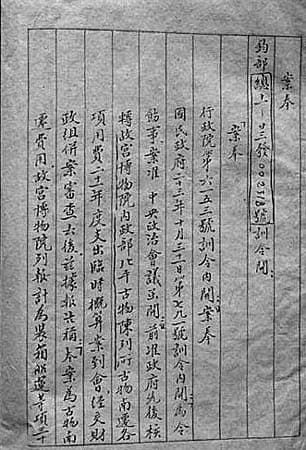 案奉
鈞部總土一廿三發002178號訓令開：
「案奉
行政院第六一五三號訓令內開：『案奉
國民政府二十三年十月三十一日第七九一號訓令內開：『為令
飭事案准 中央政治會議函開『前准政府先後核
轉故宮博物院內政部北平古物陳列所古物南遷各
項用費二十二年度支出臨時概算案到會經交財
政組併案審查去後茲據報告稱『本案為古物南
遷費用故宮博物院列報計為裝箱船運等項二十